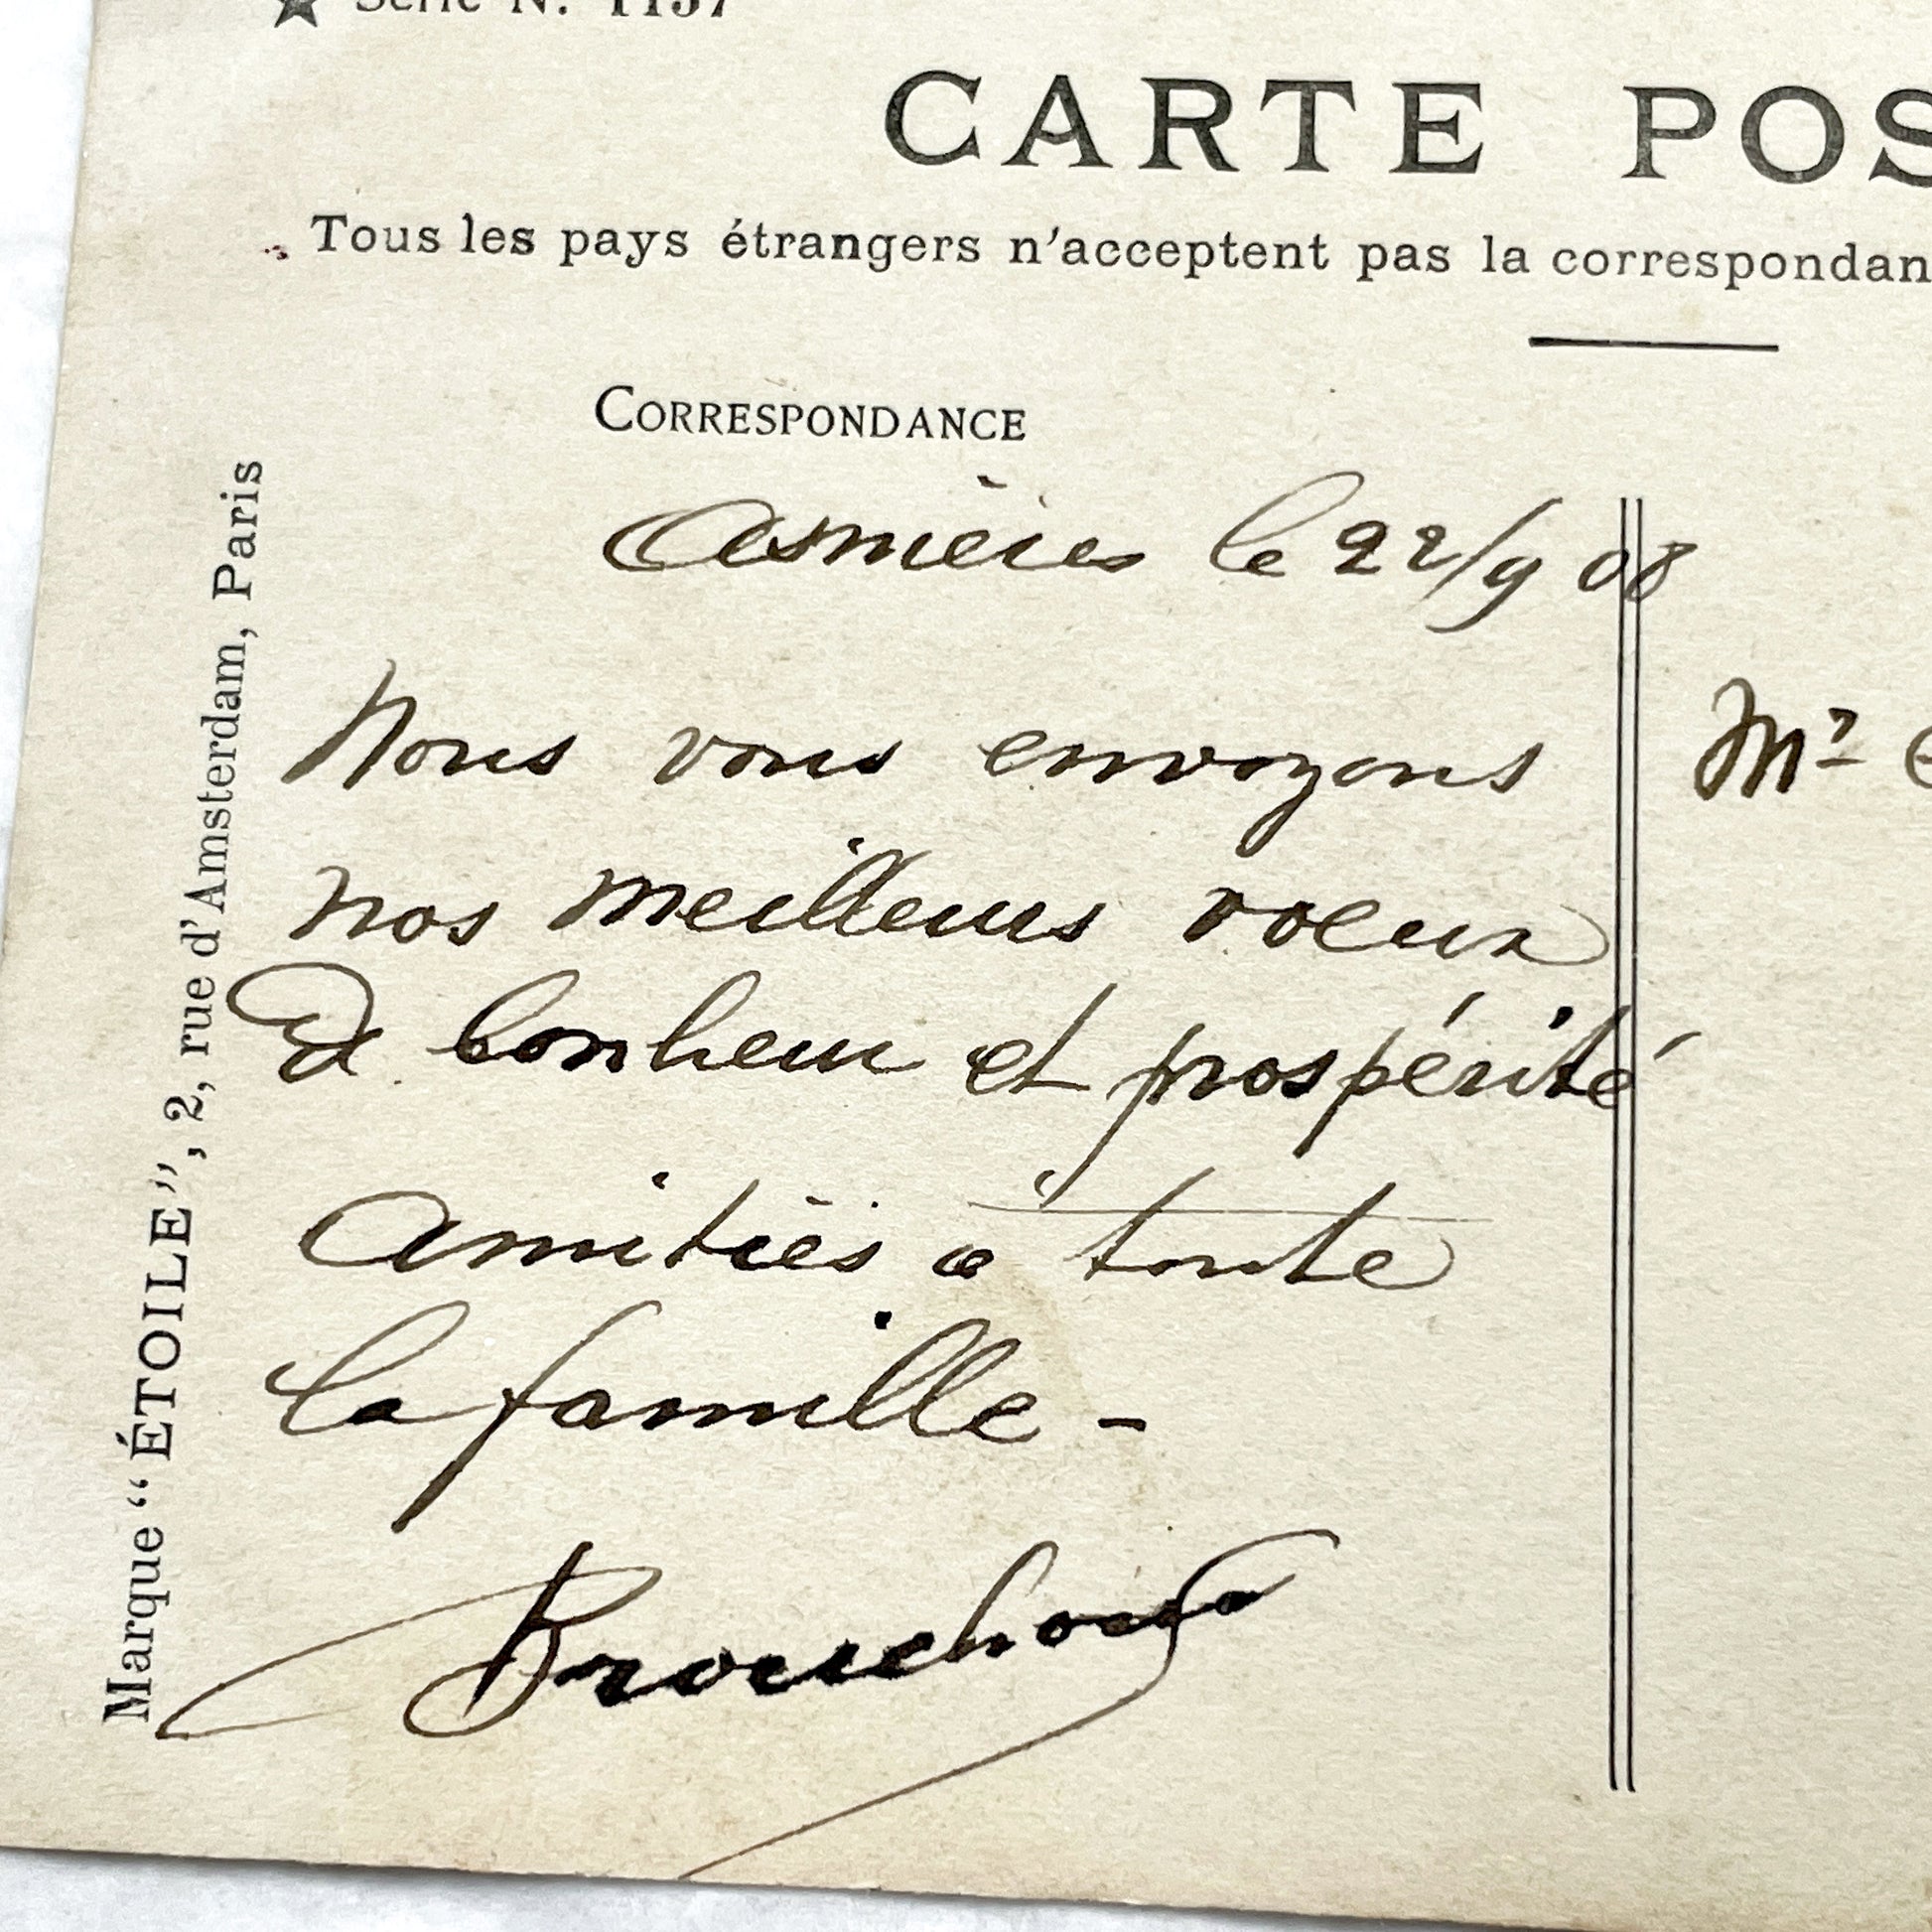 CARTE POS
Tous les pays étrangers n'acceptent pas la correspondan
CORRESPONDANCE
Asnières le 22/9 08
Nous vous envoyons
nos meilleurs voeux
de bonheur et prospérité
Amitiés à toute
la famille -
Marque "ÉTOILE", 2, rue d'Amsterdam, Paris
Mr